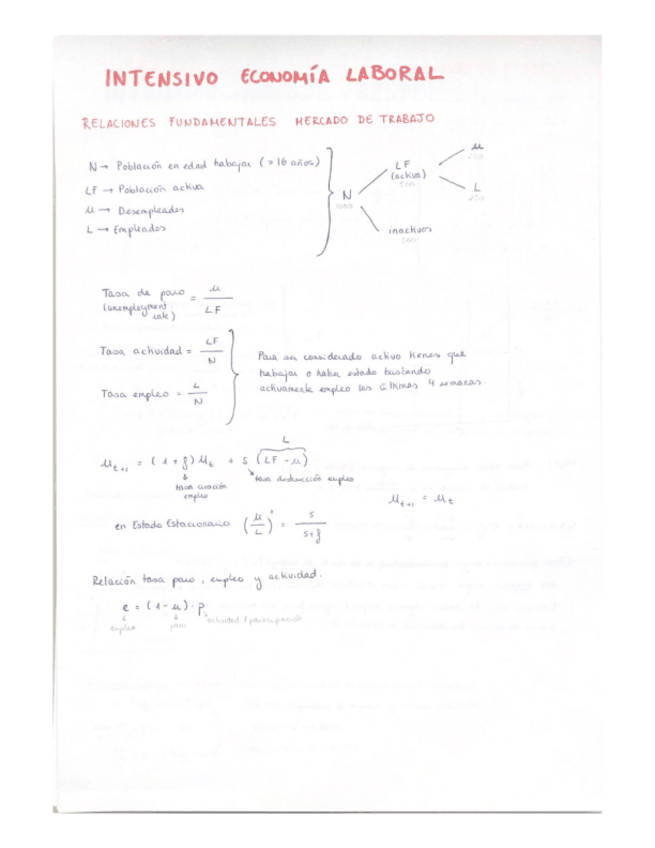 INTENSIVO ECONOMÍA LABORAL
RELACIONES FUNDAMENTALES MERCADO DE TRABAJO
N → Población en edad trabajar (>16 años)
LF → Población activa
u → Desempleados
L → Empleados
N
1000
LF
(activa)
500
u
250
L
250
inactivos
500
Tasa de paro = u / LF
(unemployment rate)
Tasa actividad = LF / N
Tasa empleo = L / N
Para ser considerado activo tienes que
trabajar o haber estado buscando
activamente empleo las últimas 4 semanas.
L
u_{t+1} = (1 + f) u_t + s (LF - u)
tasa creación empleo
tasa destrucción empleo
u_{t+1} = u_t
en Estado Estacionario (u/L)* = s / s+f
Relación tasa paro, empleo y actividad.
e = (1 - u) · P
empleo
paro
actividad / participación